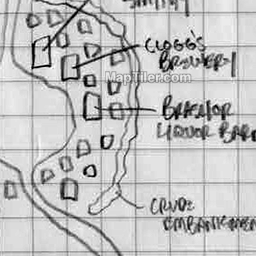 CLOGG'S
BREWERY
MapTiler.com
LIQUOR BAR
CRUDE
EMBANKMEN